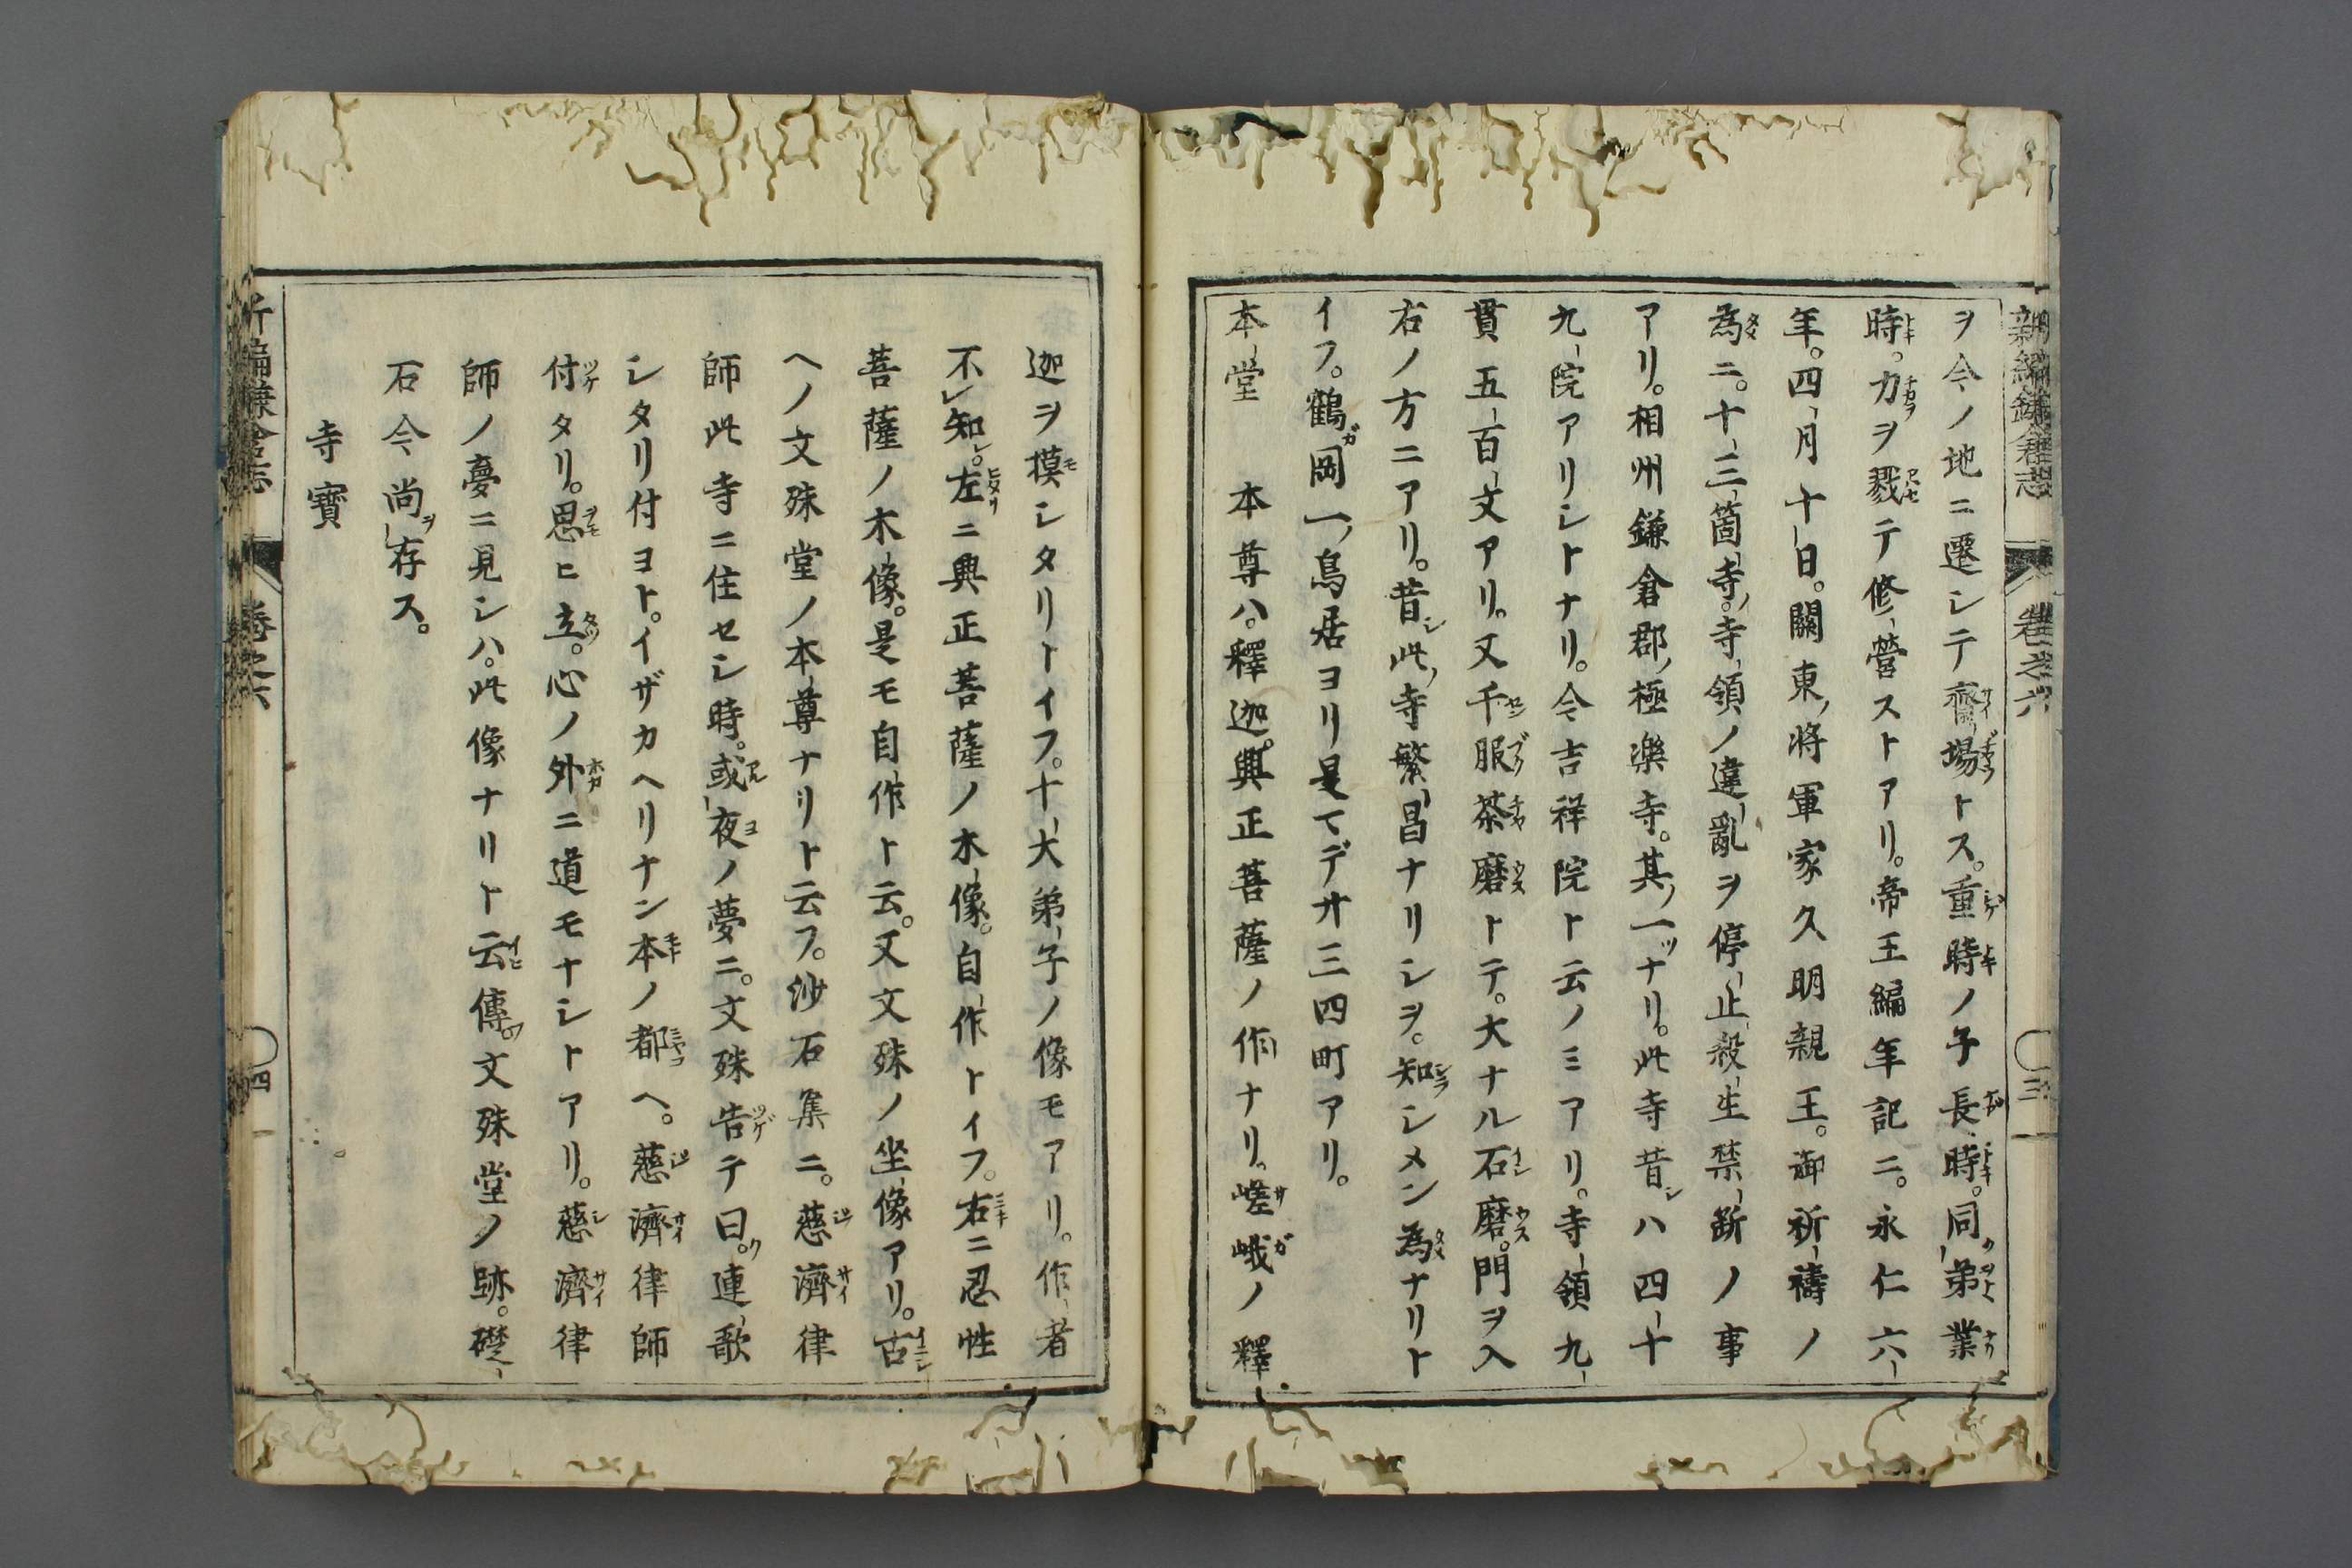 新編鎌倉志　卷之六　三
ヲ今ノ地ニ遷シテ齋場トス。重時ノ子長時。同弟業
時。力ヲ戮テ修營ストアリ。帝王編年記ニ。永仁六
年。四月十日。關東將軍家久明親王。御祈禱ノ
為ニ。十三箇寺。寺領ノ違亂ヲ停止殺生禁斷ノ事
アリ。相州鎌倉郡極樂寺。其一ツナリ。此寺昔シハ四十
九院アリシトナリ。今吉祥院ト云ノミアリ。寺領九
貫五百文アリ。又千服茶磨トテ。大ナル石磨。門ヲ入
右ノ方ニアリ。昔シ此寺繁昌ナリシヲ。知シメン為ナリト
イフ。鶴岡一鳥居ヨリ是マデ廿三四町アリ。
本堂　本尊ハ。釋迦。興正菩薩ノ作ナリ。嵯峨ノ釋
迦ヲ摸シタリトイフ。十大弟子ノ像モアリ。作者
不レ知。左ニ興正菩薩ノ木像。自作トイフ。右ニ忍性
菩薩ノ木像。是モ自作ト云。又文殊ノ坐像アリ。古
ヘノ文殊堂ノ本尊ナリト云フ。沙石集ニ。慈濟律
師此寺ニ住セシ時。或夜ノ夢ニ。文殊告テ曰。連歌
シタリ付ヨト。イザカヘリナン本ノ都ヘ。慈濟律師
付タリ。思ヒ立。心ノ外ニ道モナシトアリ。慈濟律
師ノ夢ニ見シハ。此像ナリト云傳。文殊堂ノ跡。礎
石今尚存ス。
寺寶
新編鎌倉志　卷之六　四